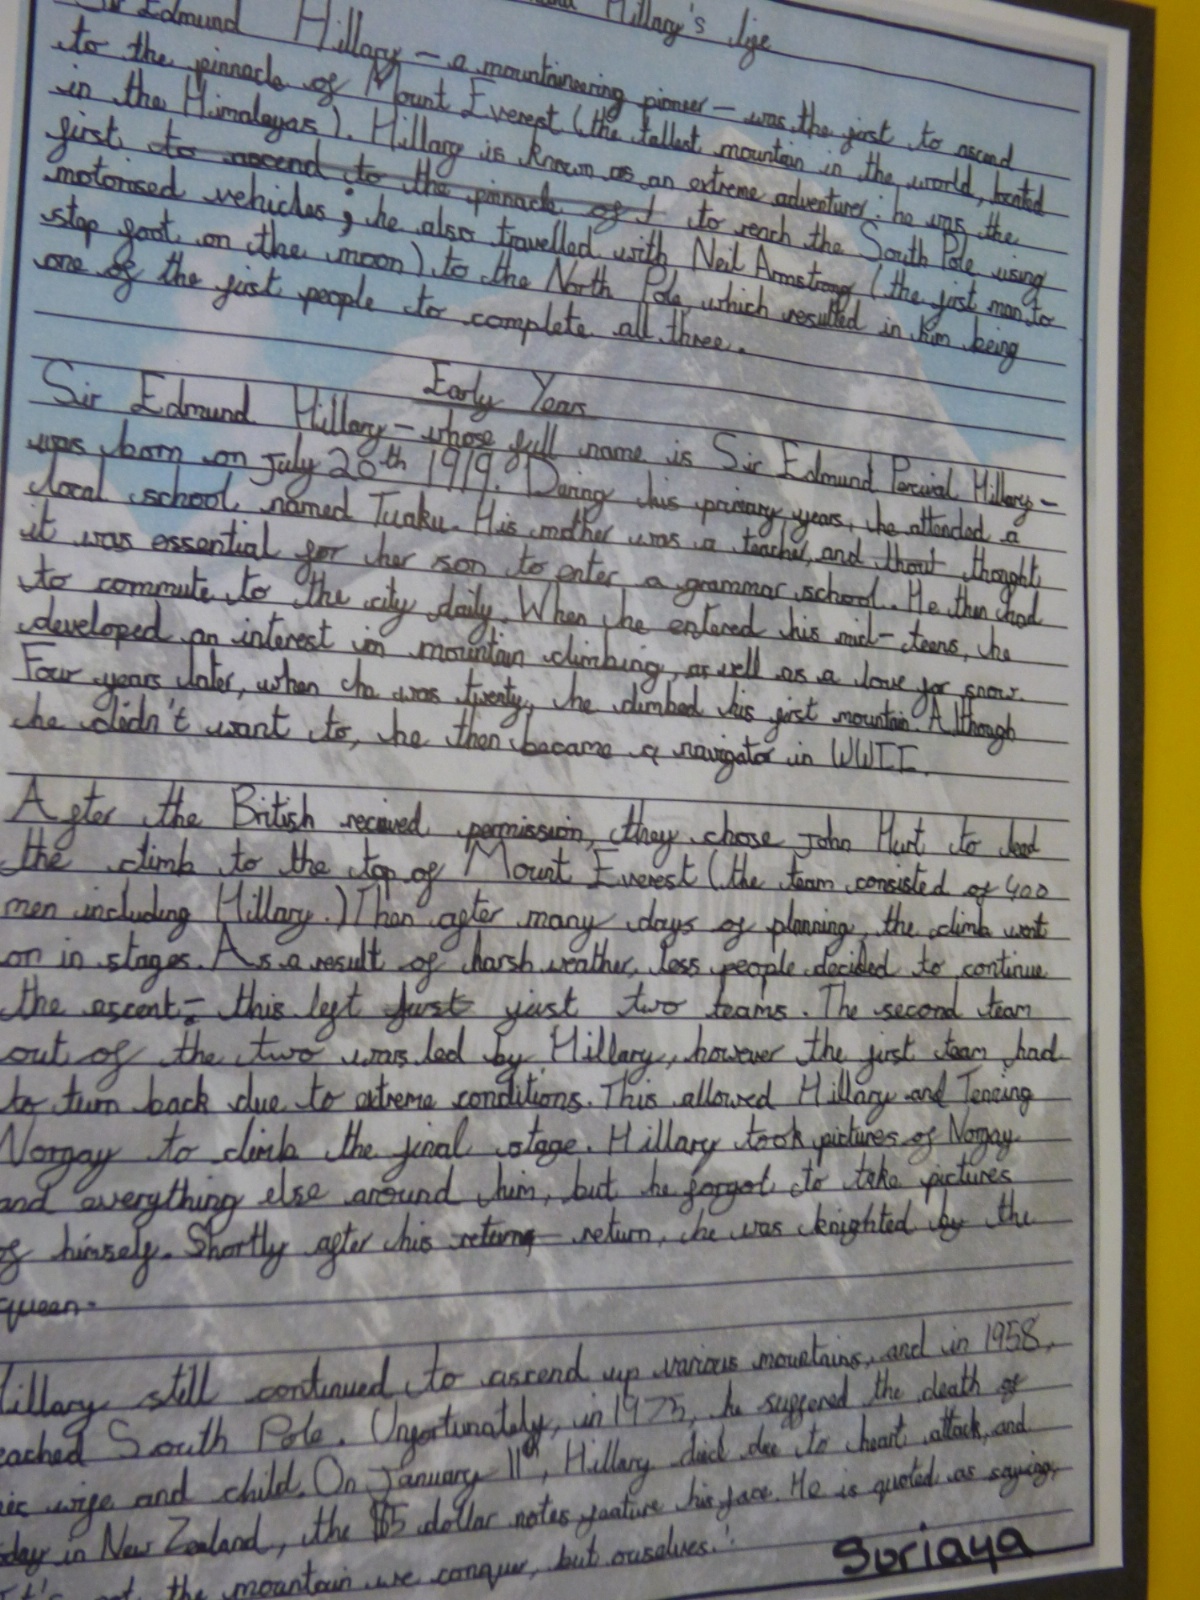 Hillary's life
Sir Edmund Hillary - a mountaineering pioneer - was the first to ascend
to the pinnacle of Mount Everest (the tallest mountain in the world, located
in the Himalayas). Hillary is known as an extreme adventurer: he was the
first to ascend to the pinnacle of to reach the South Pole using
motorised vehicles; he also travelled with Neil Armstrong (the first man to
step foot on the moon) to the North Pole, which resulted in him being
one of the first people to complete all three.
Early Years
Sir Edmund Hillary - whose full name is Sir Edmund Percival Hillary -
was born on July 20th 1919. During his primary years, he attended a
local school named Tuaku. His mother was a teacher, and thout thought
it was essential for her son to enter a grammar school. He then had
to commute to the city daily. When he entered his mid-teens, he
developed an interest in mountain climbing, as well as a love for snow.
Four years later, when he was twenty, he climbed his first mountain. Although
he didn't want to, he then became a navigator in WWII.
After the British received permission, they chose John Hurt to lead
the climb to the top of Mount Everest (the team consisted of 400
men including Hillary.) Then after many days of planning, the climb went
on in stages. As a result of harsh weather, less people decided to continue
the ascent - this left just just two teams. The second team
out of the two was led by Hillary, however the first team had
to turn back due to extreme conditions. This allowed Hillary and Tencing
Norgay to climb the final stage. Hillary took pictures of Norgay
and everything else around him, but he forgot to take pictures
of himself. Shortly after his return, he was knighted by the
queen.
Hillary still continued to ascend up various mountains, and in 1958,
reached South Pole. Unfortunately, in 1975, he suffered the death of
his wife and child. On January 11th, Hillary died due to heart attack, and
today in New Zealand, the $5 dollar notes feature his face. He is quoted as saying,
It's not the mountain we conquer, but ourselves.'
Suriaya